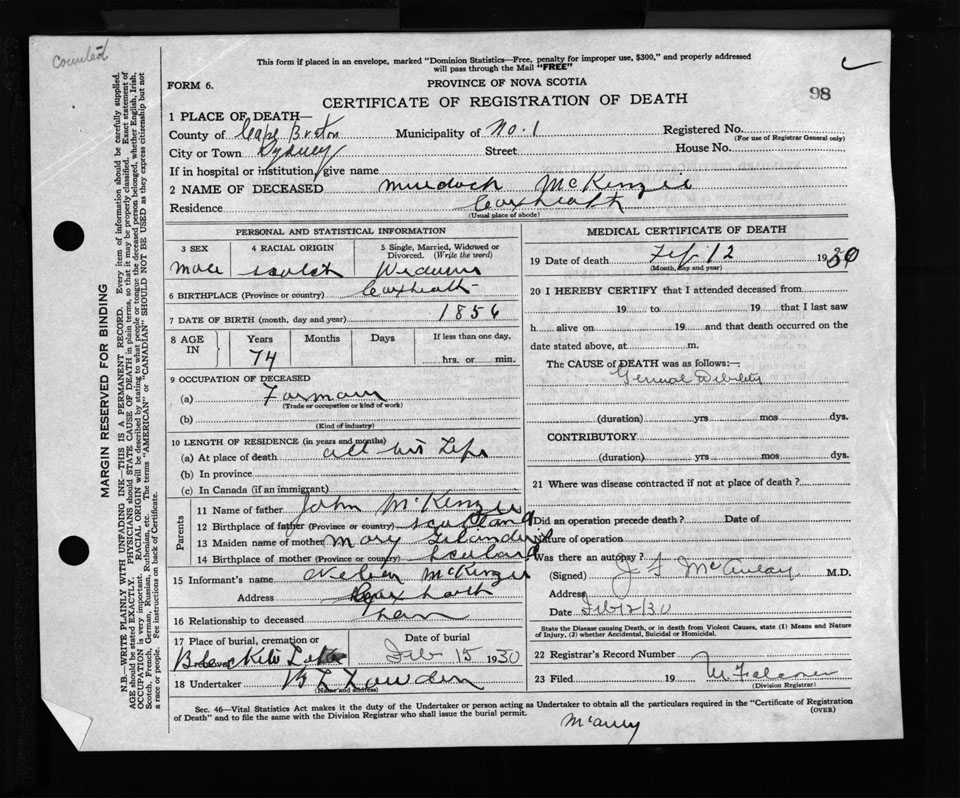 Counted
This form if placed in an envelope, marked "Dominion Statistics—Free, penalty for improper use, $300," and properly addressed
will pass through the Mail "FREE"
FORM 6.
PROVINCE OF NOVA SCOTIA
98
CERTIFICATE OF REGISTRATION OF DEATH
1 PLACE OF DEATH—
County of Cape Breton Municipality of No. 1 Registered No.
(For use of Registrar General only)
City or Town Sydney Street House No.
If in hospital or institution, give name
2 NAME OF DECEASED Murdoch McKenzie
Residence Coxheath
(Usual place of abode)
PERSONAL AND STATISTICAL INFORMATION
3 SEX 4 RACIAL ORIGIN 5 Single, Married, Widowed or Divorced. (Write the word)
Male Scotch
6 BIRTHPLACE (Province or country) Coxheath
7 DATE OF BIRTH (month, day and year) 1856
8 AGE IN Years Months Days If less than one day,
74 hrs. or min.
9 OCCUPATION OF DECEASED
(a)
(Trade or occupation or kind of work)
(b)
(Kind of industry)
10 LENGTH OF RESIDENCE (in years and months)
(a) At place of death all his Life
(b) In province
(c) In Canada (if an immigrant)
Parents
11 Name of father John McKenzie
12 Birthplace of father (Province or country) Scotland
13 Maiden name of mother Mary
14 Birthplace of mother (Province or country)
15 Informant's name McKenzie
Address Coxheath
16 Relationship to deceased
17 Place of burial, cremation or removal Date of burial
Feb 15 1930
18 Undertaker
(Name and address)
MEDICAL CERTIFICATE OF DEATH
19 Date of death Feb 12 1930
(Month, day and year)
20 I HEREBY CERTIFY that I attended deceased from
19 to 19 that I last saw
h alive on 19 and that death occurred on the
date stated above, at m.
The CAUSE of DEATH was as follows:—
General Debility
(duration) yrs mos dys.
CONTRIBUTORY
(duration) yrs mos dys.
21 Where was disease contracted if not at place of death?
Did an operation precede death? Date of
Nature of operation
Was there an autopsy?
(Signed) McAulay M.D.
Address
Date Feb 12/30
State the Disease causing Death, or in death from Violent Causes, state (1) Means and Nature
of Injury, (2) whether Accidental, Suicidal or Homicidal.
22 Registrar's Record Number
23 Filed 19
(Division Registrar)
Sec. 46—Vital Statistics Act makes it the duty of the Undertaker or person acting as Undertaker to obtain all the particulars required in the "Certificate of Registration
of Death" and to file the same with the Division Registrar who shall issue the burial permit. (OVER)
MARGIN RESERVED FOR BINDING
N.B.—WRITE PLAINLY WITH UNFADING INK—THIS IS A PERMANENT RECORD. Every item of information should be carefully supplied.
AGE should be stated EXACTLY. PHYSICIANS should STATE CAUSE OF DEATH in plain terms, so that it may be properly classified. Exact statement of
OCCUPATION is very important. RACIAL ORIGIN will be described by stating to what people or tongue the deceased person belonged, whether English, Irish,
Scotch, French, German, Russian, Ruthenian, etc. The terms "AMERICAN" or "CANADIAN" SHOULD NOT BE USED as they express citizenship but not
a race or people. See instructions on back of Certificate.